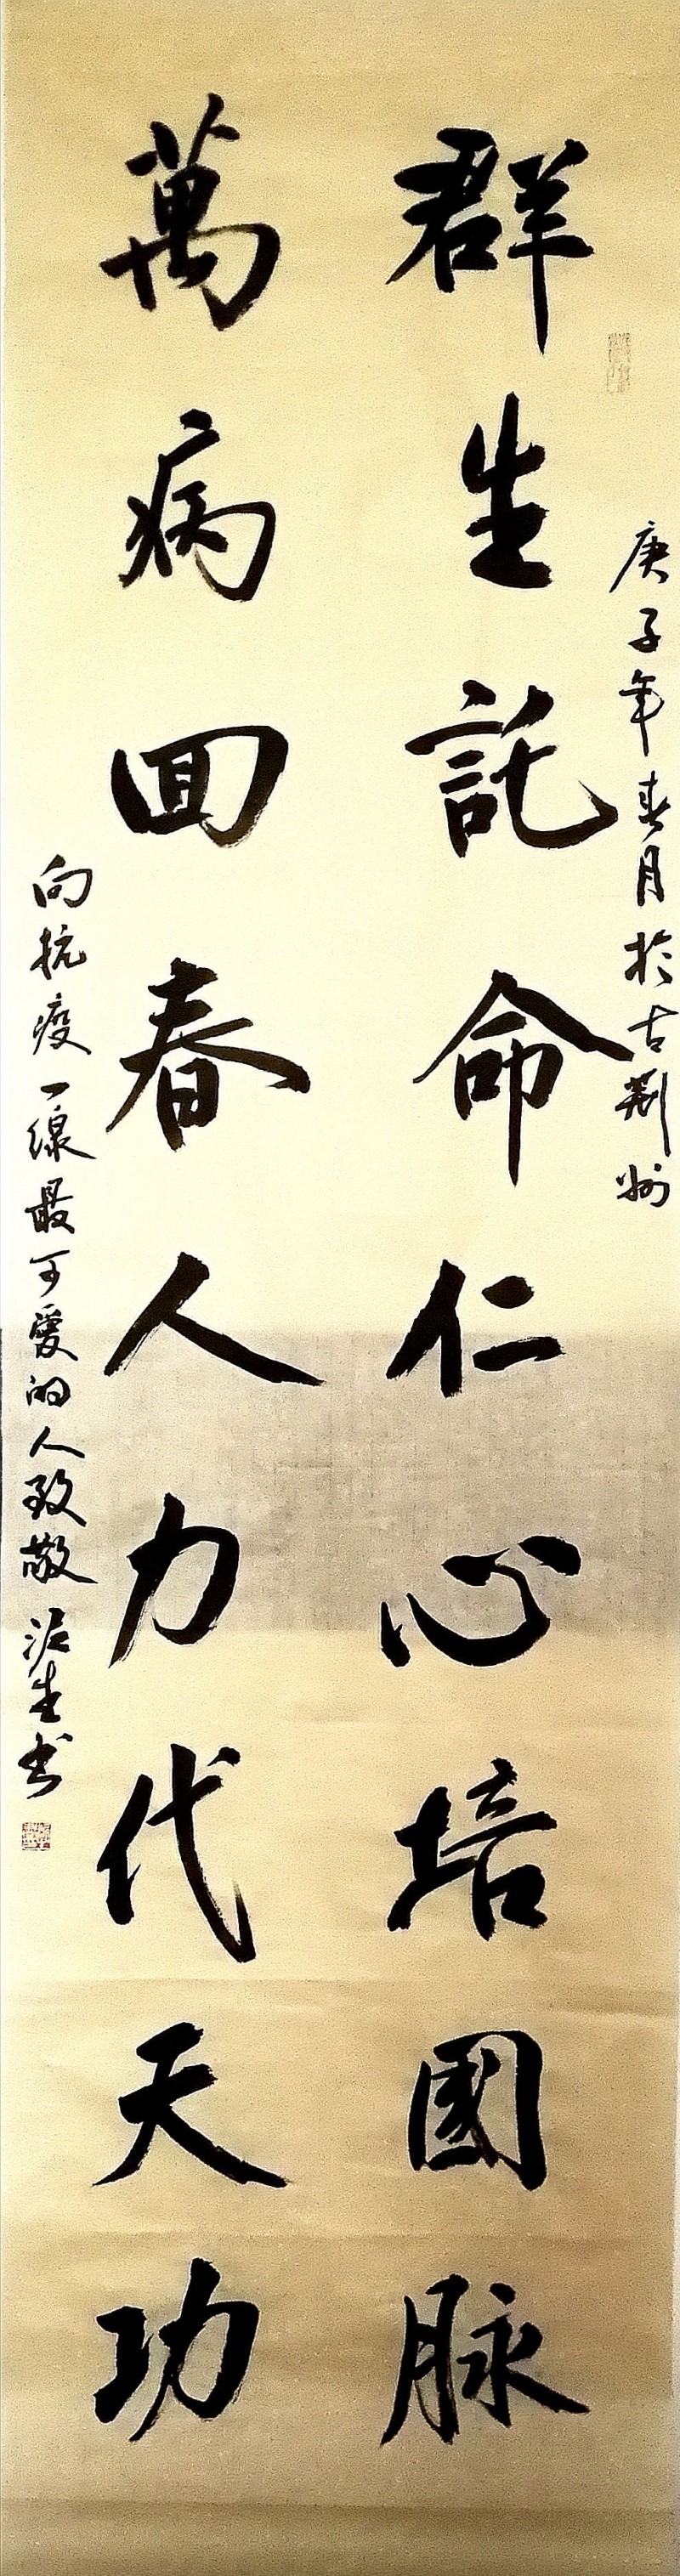 庚子年春月於古荆州
群生託命仁心培國脉
萬病回春人力代天功
向抗疫一線最可爱的人致敬 生书